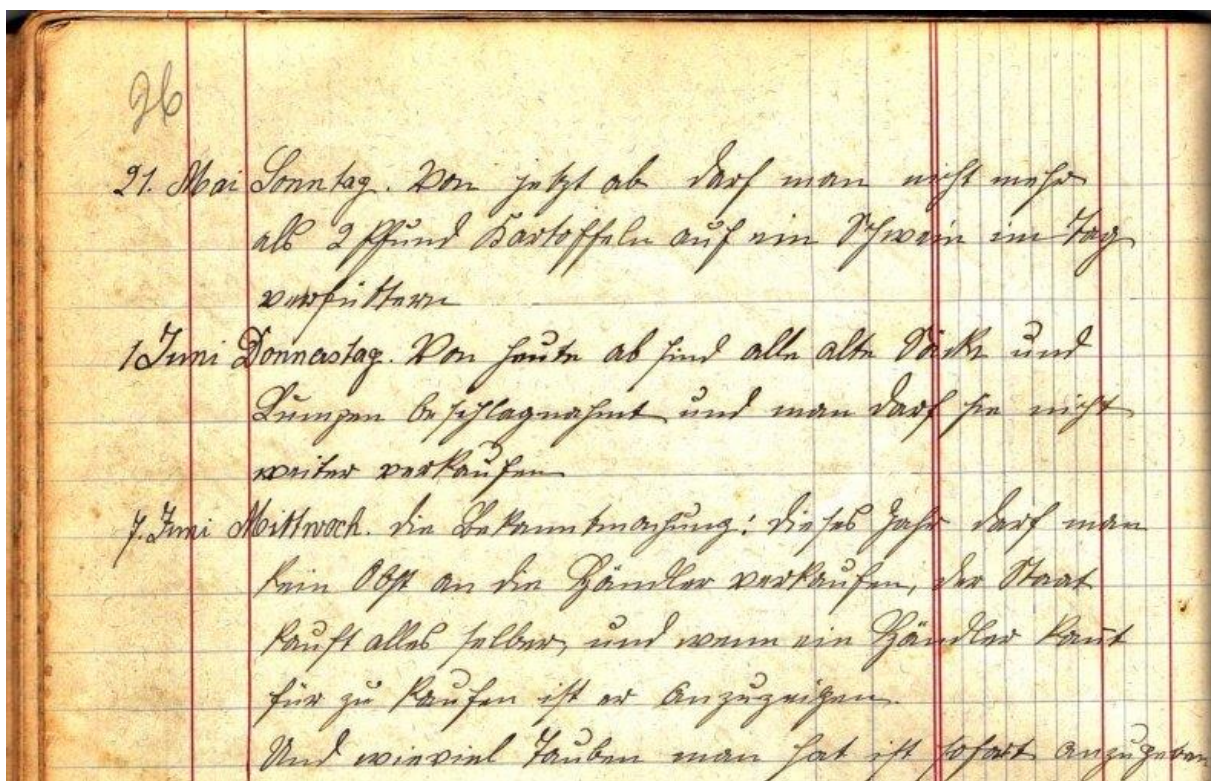 26
21. Mai Sonntag. Von jetzt ab darf man nicht mehr
als 2 Pfund Kartoffeln auf ein Schwein im Tag
verfüttern
1 Juni Donnerstag. Von heute ab sind alle alte Säcke und
Lumpen beschlagnahmt und man darf sie nicht
weiter verkaufen
7. Juni Mittwoch. die Bekanntmachung: dieses Jahr darf man
kein Obst an die Händler verkaufen, der Staat
kauft alles selber, und wenn ein Händler kommt
für zu kaufen ist er anzuzeigen.
Und wieviel Tauben man hat ist sofort anzugeben